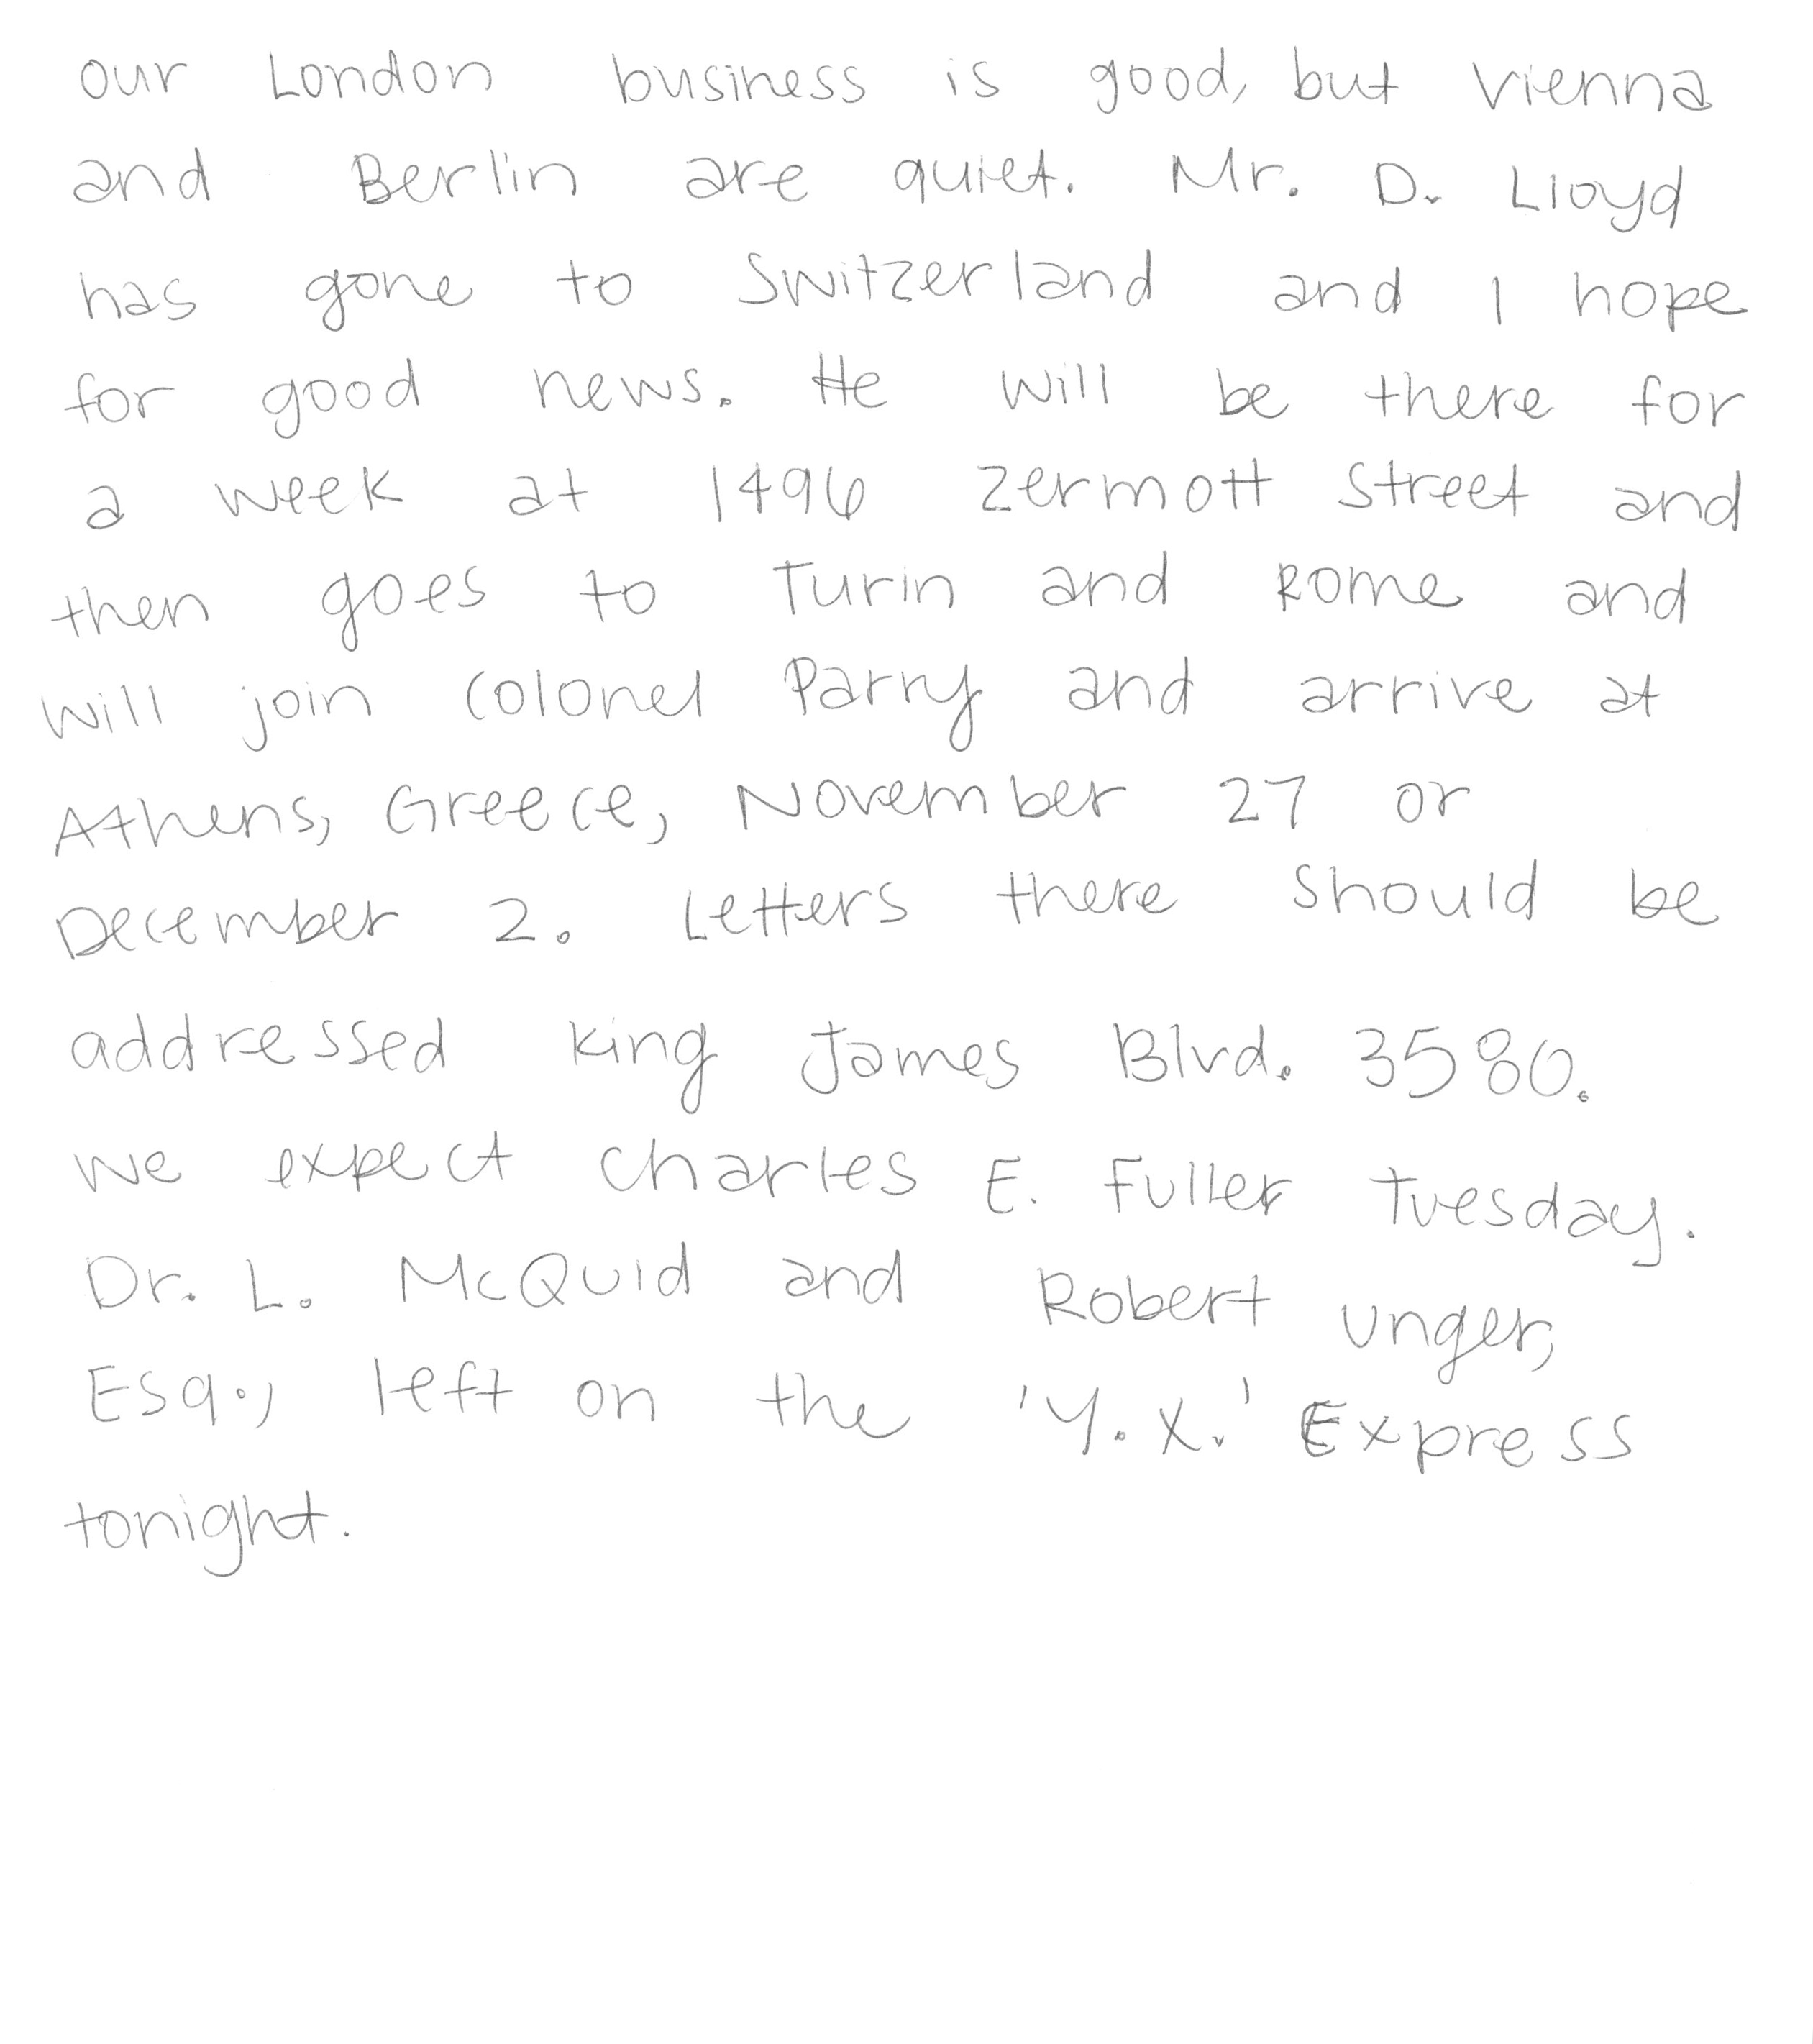 our London business is good, but Vienna
and Berlin are quiet. Mr. D. Lloyd
has gone to Switzerland and I hope
for good news. He will be there for
a week at 1496 Zermott Street and
then goes to Turin and Rome and
will join Colonel Parry and arrive at
Athens, Greece, November 27 or
December 2. Letters there should be
addressed King James Blvd. 3580.
We expect Charles E. Fuller Tuesday.
Dr. L. McQuid and Robert Unger,
Esq., left on the 'Y.X.' Express
tonight.